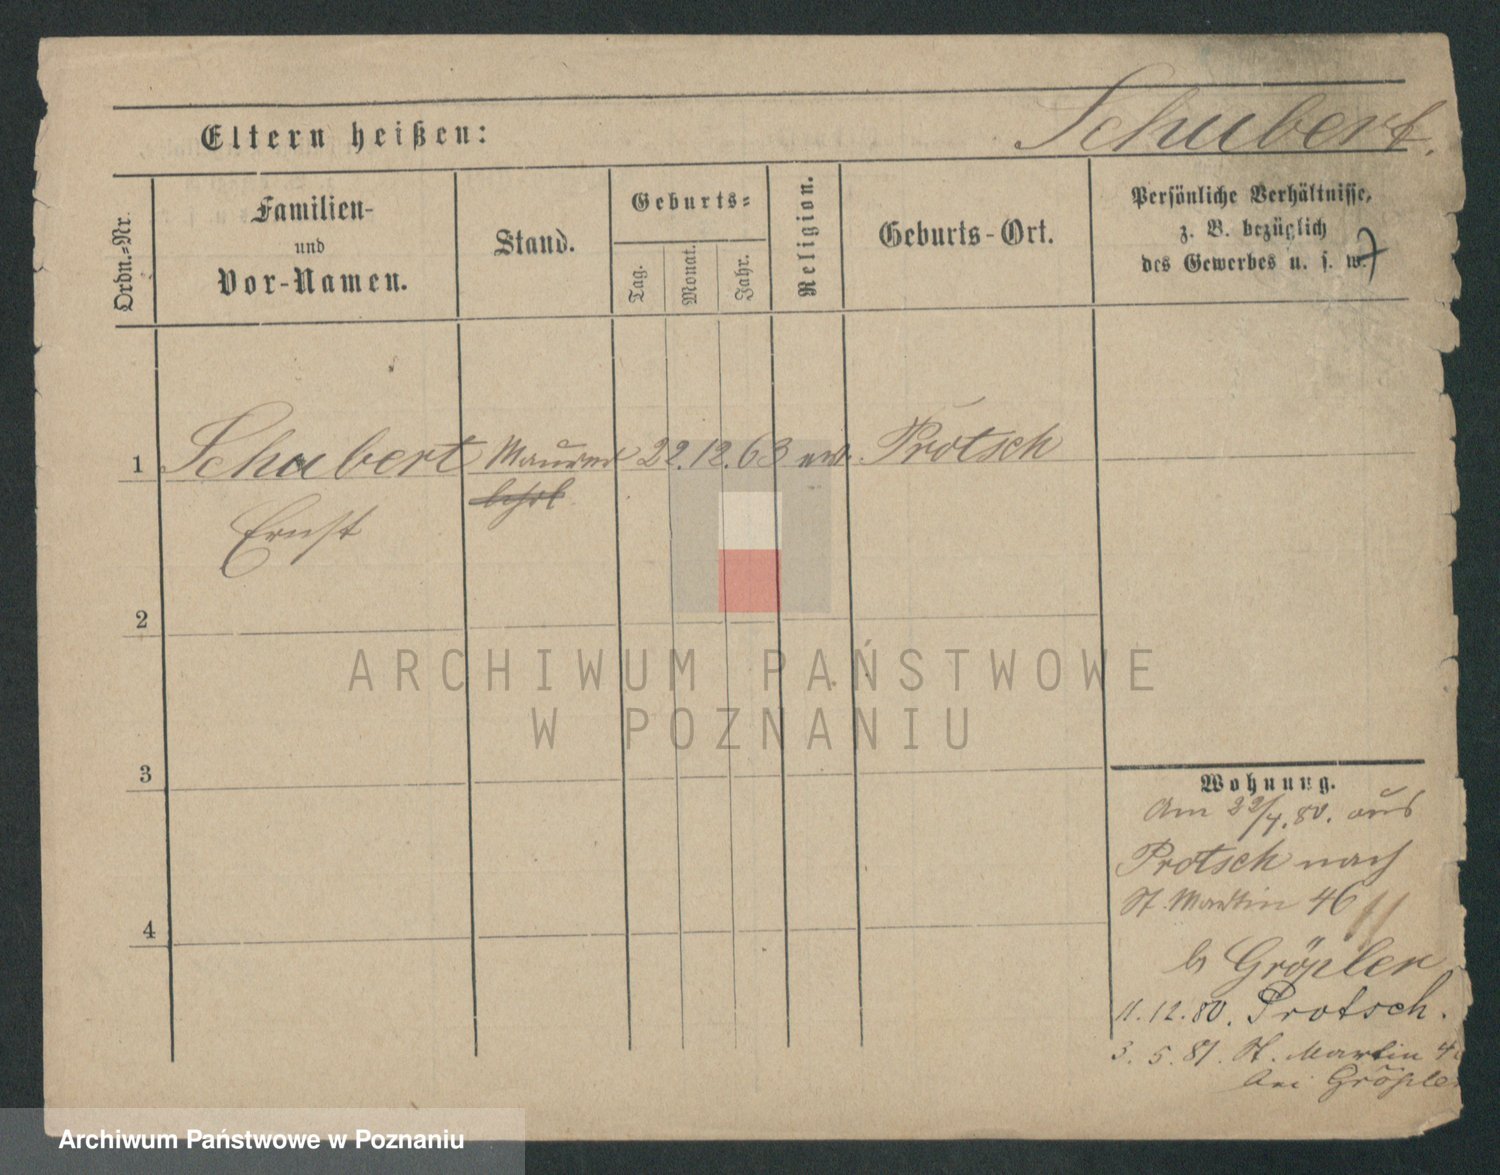 Eltern heißen:
Schubert.
Ordn.-Nr.
Familien-
und
Vor-Namen.
Stand.
Geburts-
Tag.
Monat.
Jahr.
Religion.
Geburts-Ort.
Persönliche Verhältnisse,
z. B. bezüglich
des Gewerbes u. s. w.
1 Schubert Maurer 22. 12. 63 ev. Protsch
Ernst
2
3
4
Wohnung.
Am 22/4. 80. aus
Protsch nach
St. Martin 46
b Gröpler
11. 12. 80. Protsch.
3. 5. 81. St. Martin
bei Gröpler
ARCHIWUM PAŃSTWOWE
W POZNANIU
Archiwum Państwowe w Poznaniu